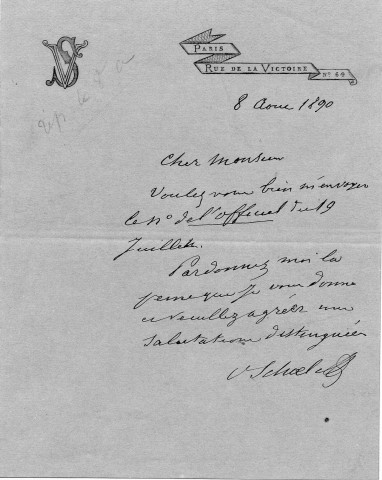 VS
PARIS
RUE DE LA VICTOIRE
N° 69
8 Aout 1890
Cher Monsieur
Voulez vous bien m'envoyer
le N° de l'officiel du 19
Juillet.
Pardonnez moi la
peine que je vous donne
et veuillez agréer mes
salutations distinguées
V Schoelcher